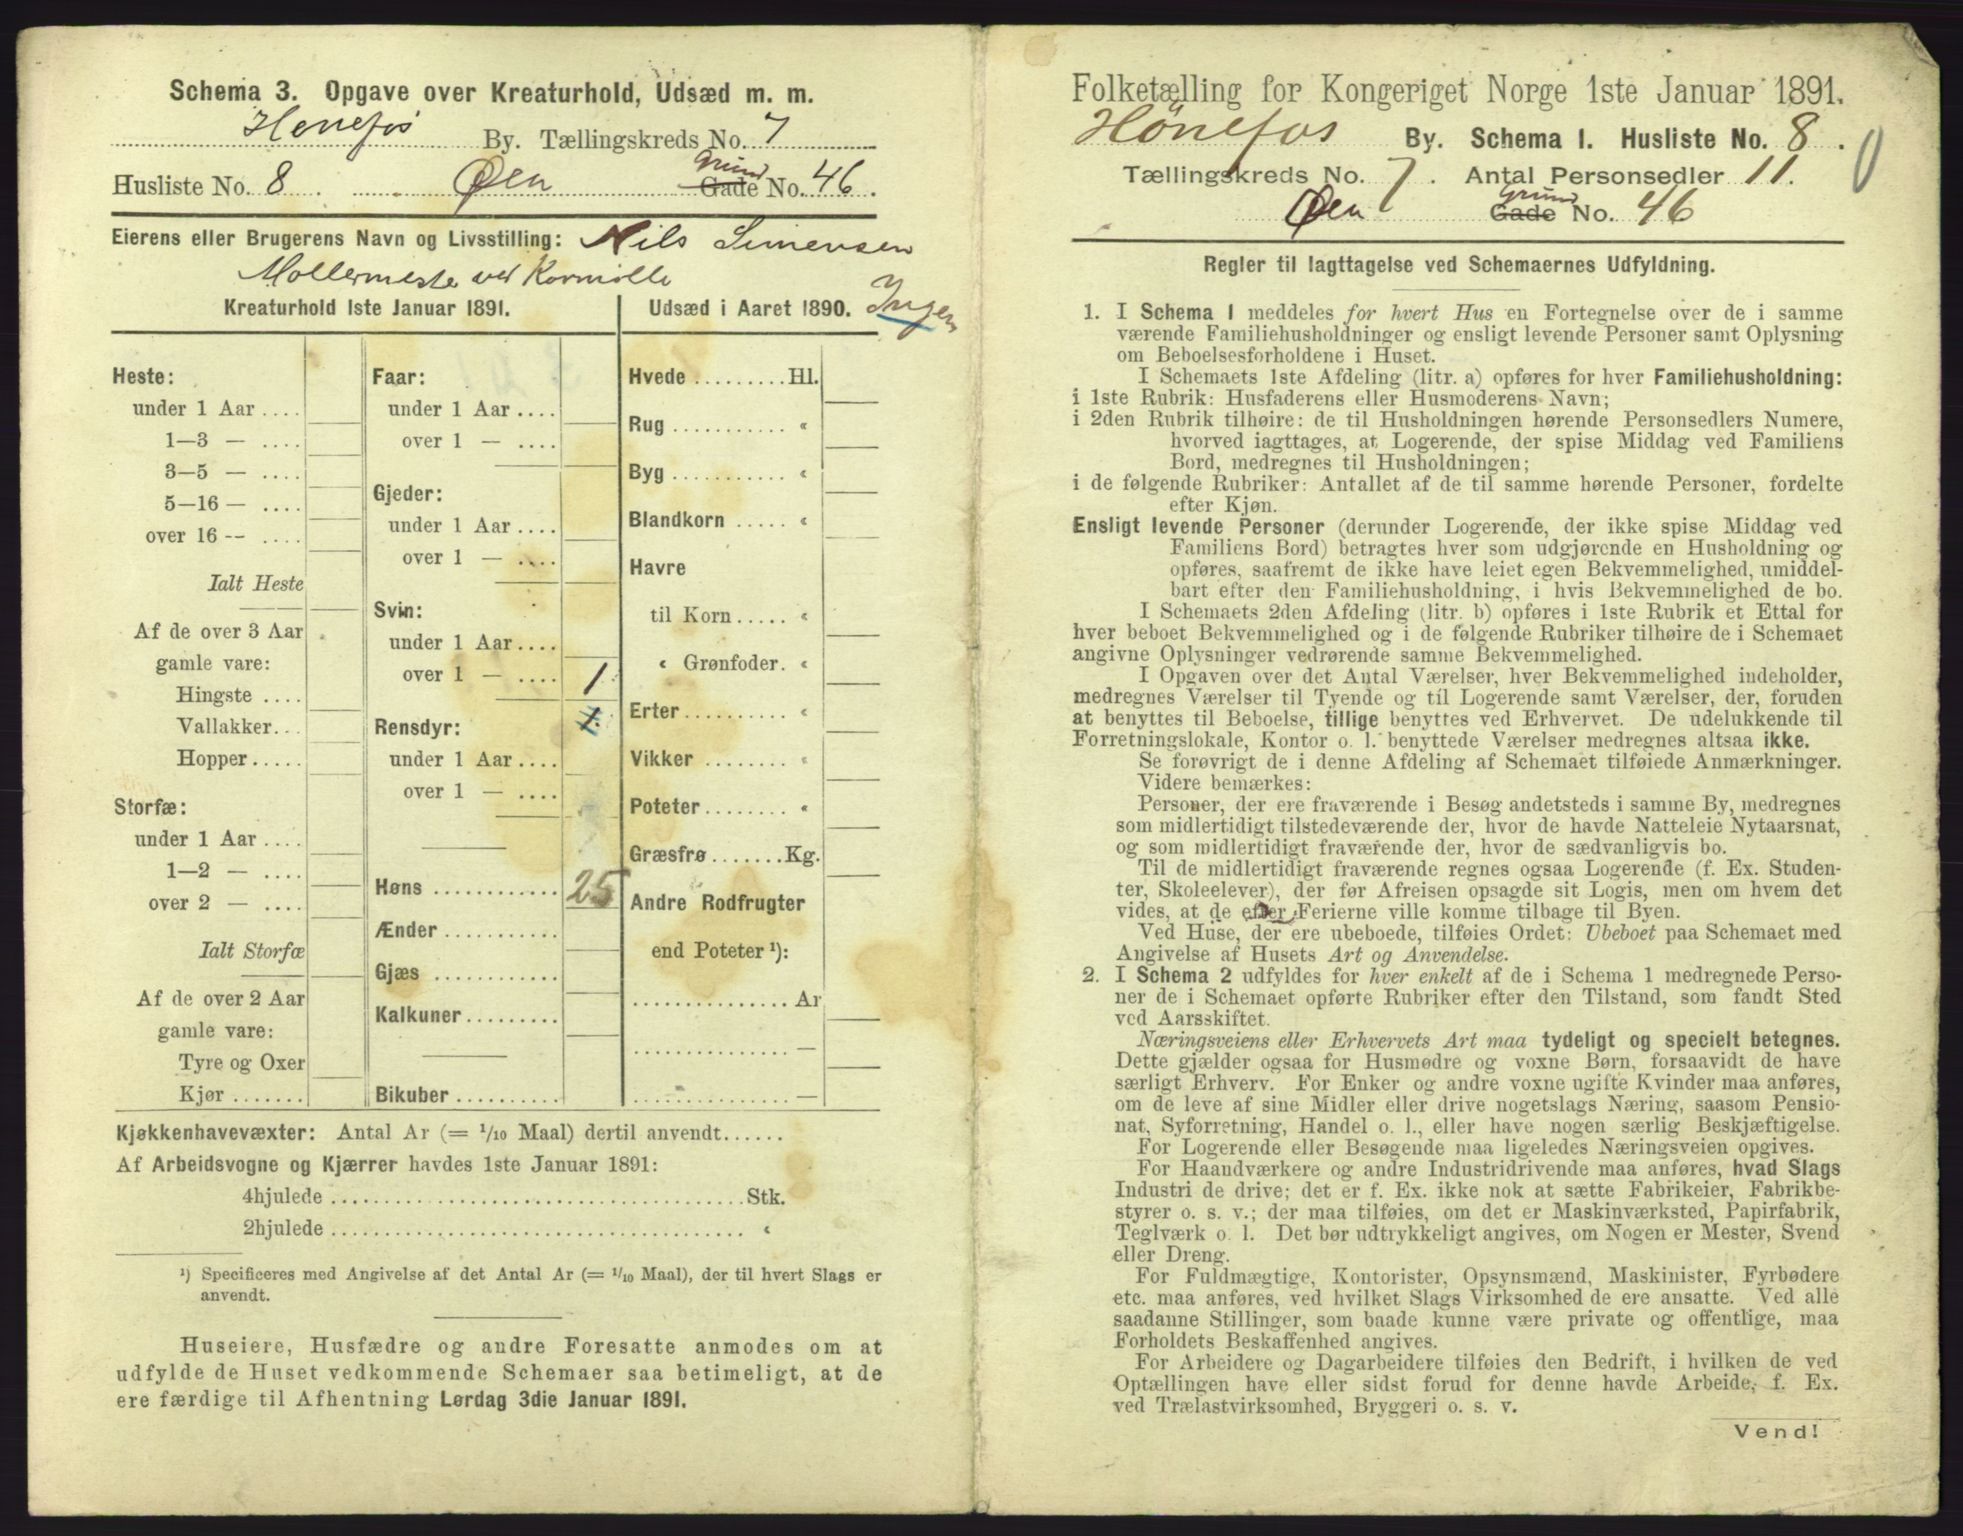 Schema 3. Opgave over Kreaturhold, Udsæd m. m.
Hønefos By. Tællingskreds No. 7
Husliste No. 8. Øen Gade Grund No. 46.
Eierens eller Brugerens Navn og Livsstilling: Nils Simensen
Møllermester ved Kornmølle
Kreaturhold 1ste Januar 1891.
Heste:
under 1 Aar ....
1—3 — ....
3—5 — ....
5—16 — ....
over 16 -- ....
Ialt Heste
Af de over 3 Aar
gamle vare:
Hingste ....
Vallakker...
Hopper.....
Storfæ:
under 1 Aar ....
1—2 — ....
over 2 — ....
Ialt Storfæ
Af de over 2 Aar
gamle vare:
Tyre og Oxer
Kjør .......
Faar:
under 1 Aar ....
over 1 — ....
Gjeder:
under 1 Aar ....
over 1 — ....
Svin:
under 1 Aar....
over 1 — .... 1
Rensdyr: 1.
under 1 Aar ....
over 1 — ....
Høns ........... 25
Ænder ..........
Gjæs ...........
Kalkuner........
Bikuber .........
Udsæd i Aaret 1890. Ingen
Hvede .........Hl.
Rug ........... «
Byg ........... «
Blandkorn ..... «
Havre
til Korn..... «
« Grønfoder. «
Erter.......... «
Vikker ........ «
Poteter........ «
Græsfrø .......Kg.
Andre Rodfrugter
end Poteter ¹):
............... Ar
............... —
............... —
Kjøkkenhavevæxter: Antal Ar (= 1/10 Maal) dertil anvendt......
Af Arbeidsvogne og Kjærrer havdes 1ste Januar 1891:
4hjulede ........................................Stk.
2hjulede ........................................ «
¹) Specificeres med Angivelse af det Antal Ar (= 1/10 Maal), der til hvert Slags er
anvendt.
Huseiere, Husfædre og andre Foresatte anmodes om at
udfylde de Huset vedkommende Schemaer saa betimeligt, at de
ere færdige til Afhentning Lørdag 3die Januar 1891.
Folketælling for Kongeriget Norge 1ste Januar 1891.
Hönefos By. Schema 1. Husliste No. 8.
Tællingskreds No. 7. Antal Personsedler 11. 0
Øen Gade Grund No. 46
Regler til Iagttagelse ved Schemaernes Udfyldning.
1. I Schema 1 meddeles for hvert Hus en Fortegnelse over de i samme
værende Familiehusholdninger og ensligt levende Personer samt Oplysning
om Beboelsesforholdene i Huset.
I Schemaets 1ste Afdeling (litr. a) opføres for hver Familiehusholdning:
i 1ste Rubrik: Husfaderens eller Husmoderens Navn;
i 2den Rubrik tilhøire: de til Husholdningen hørende Personsedlers Numere,
hvorved iagttages, at Logerende, der spise Middag ved Familiens
Bord, medregnes til Husholdningen;
i de følgende Rubriker: Antallet af de til samme hørende Personer, fordelte
efter Kjøn.
Ensligt levende Personer (derunder Logerende, der ikke spise Middag ved
Familiens Bord) betragtes hver som udgjørende en Husholdning og
opføres, saafremt de ikke have leiet egen Bekvemmelighed, umiddel-
bart efter den Familiehusholdning, i hvis Bekvemmelighed de bo.
I Schemaets 2den Afdeling (litr. b) opføres i 1ste Rubrik et Ettal for
hver beboet Bekvemmelighed og i de følgende Rubriker tilhøire de i Schemaet
angivne Oplysninger vedrørende samme Bekvemmelighed.
I Opgaven over det Antal Værelser, hver Bekvemmelighed indeholder,
medregnes Værelser til Tyende og til Logerende samt Værelser, der, foruden
at benyttes til Beboelse, tillige benyttes ved Erhvervet. De udelukkende til
Forretningslokale, Kontor o. l. benyttede Værelser medregnes altsaa ikke.
Se forøvrigt de i denne Afdeling af Schemaet tilføiede Anmærkninger.
Videre bemærkes:
Personer, der ere fraværende i Besøg andetsteds i samme By, medregnes
som midlertidigt tilstedeværende der, hvor de havde Natteleie Nytaarsnat,
og som midlertidigt fraværende der, hvor de sædvanligvis bo.
Til de midlertidigt fraværende regnes ogsaa Logerende (f. Ex. Studen-
ter, Skoleelever), der før Afreisen opsagde sit Logis, men om hvem det
vides, at de efter Ferierne ville komme tilbage til Byen.
Ved Huse, der ere ubeboede, tilføies Ordet: Ubeboet paa Schemaet med
Angivelse af Husets Art og Anvendelse.
2. I Schema 2 udfyldes for hver enkelt af de i Schema 1 medregnede Perso-
ner de i Schemaet opførte Rubriker efter den Tilstand, som fandt Sted
ved Aarsskiftet.
Næringsveiens eller Erhvervets Art maa tydeligt og specielt betegnes.
Dette gjælder ogsaa for Husmødre og voxne Børn, forsaavidt de have
særligt Erhverv. For Enker og andre voxne ugifte Kvinder maa anføres,
om de leve af sine Midler eller drive nogetslags Næring, saasom Pensio-
nat, Syforretning, Handel o. l., eller have nogen særlig Beskjæftigelse.
For Logerende eller Besøgende maa ligeledes Næringsveien opgives.
For Haandværkere og andre Industridrivende maa anføres, hvad Slags
Industri de drive; det er f. Ex. ikke nok at sætte Fabrikeier, Fabrikbe-
styrer o. s. v.; der maa tilføies, om det er Maskinværksted, Papirfabrik,
Teglværk o. l. Det bør udtrykkeligt angives, om Nogen er Mester, Svend
eller Dreng.
For Fuldmægtige, Kontorister, Opsynsmænd, Maskinister, Fyrbødere
etc. maa anføres, ved hvilket Slags Virksomhed de ere ansatte. Ved alle
saadanne Stillinger, som baade kunne være private og offentlige, maa
Forholdets Beskaffenhed angives.
For Arbeidere og Dagarbeidere tilføies den Bedrift, i hvilken de ved
Optællingen have eller sidst forud for denne havde Arbeide, f. Ex.
ved Trælastvirksomhed, Bryggeri o. s. v.
Vend!